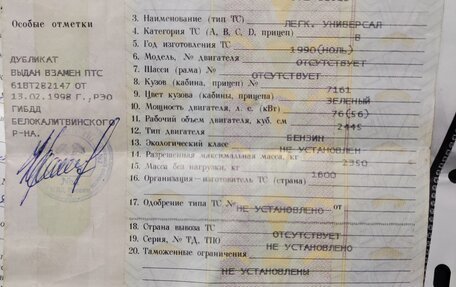 Особые отметки
ДУБЛИКАТ
ВЫДАН ВЗАМЕН ПТС
61ВТ282147 ОТ
13.02.1998 Г., РЭО
ГИБДД
БЕЛОКАЛИТВИНСКОГО
Р-НА.
3. Наименование (тип) ТС ЛЕГК. УНИВЕРСАЛ
4. Категория ТС (A, B, C, D, прицеп) B
5. Год изготовления ТС 1990(НОЛЬ)
6. Модель, № двигателя ОТСУТСТВУЕТ
7. Шасси (рама) № ОТСУТСТВУЕТ
8. Кузов (кабина, прицеп) № 7161
9. Цвет кузова (кабины, прицепа) ЗЕЛЕНЫЙ
10. Мощность двигателя, л. с. (кВт) 76(56)
11. Рабочий объем двигателя, куб. см 2445
12. Тип двигателя БЕНЗИН
13. Экологический класс НЕ УСТАНОВЛЕН
14. Разрешенная максимальная масса, кг 2350
15. Масса без нагрузки, кг 1600
16. Организация—изготовитель ТС (страна)
17. Одобрение типа ТС № НЕ УСТАНОВЛЕНО от
18. Страна вывоза ТС ОТСУТСТВУЕТ
19. Серия, № ТД, ТПО НЕ УСТАНОВЛЕНО
20. Таможенные ограничения
НЕ УСТАНОВЛЕНЫ